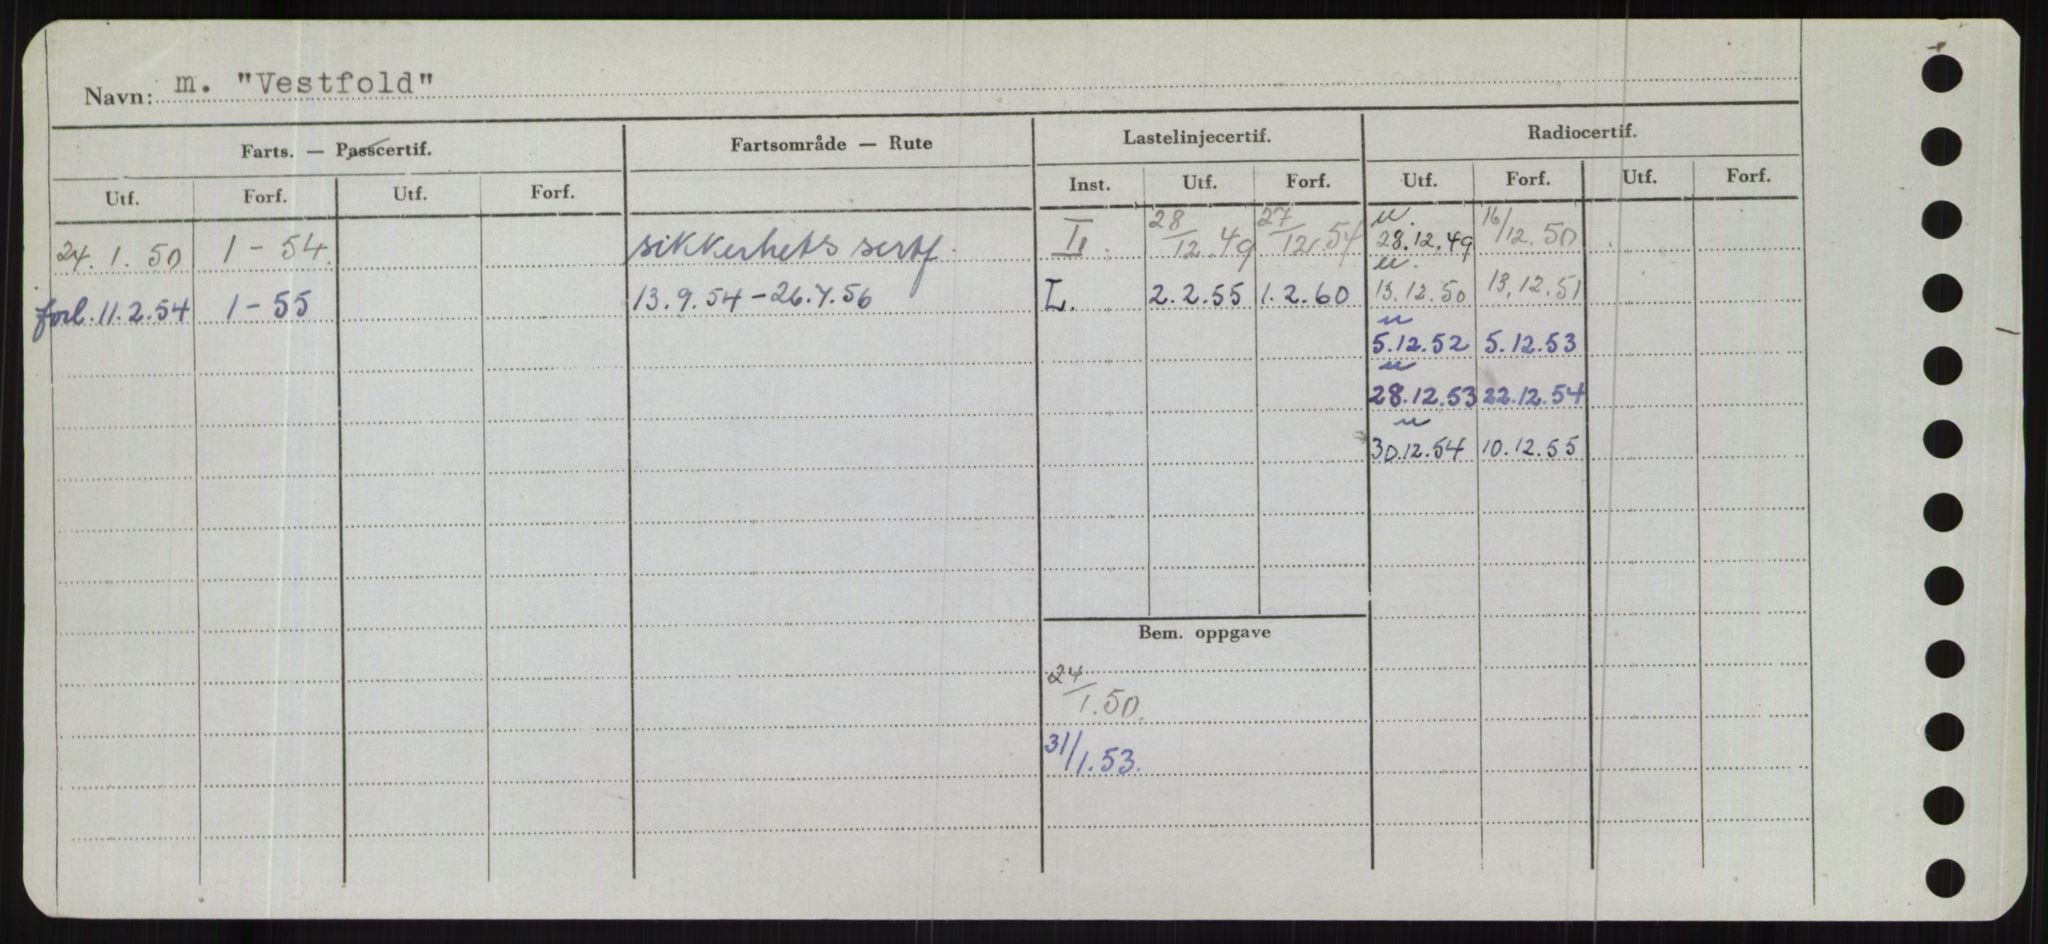 Navn: m. "Vestfold"
Farts. — Passcertif. Fartsområde — Rute Lastelinjecertif. Radiocertif.
Utf. Forf. Utf. Forf. Inst. Utf. Forf. Utf. Forf. Utf. Forf.
24. 1. 50 1 - 54. sikkerhets sertf. 28/12.49 27/12.54 u. 28.12.49 16/12.50
forl. 11.2.54 1 - 55 13.9.54 - 26.7.56 L. 2.2.55 1.2.60 u. 13.12.50 13.12.51
u 5.12.52 5.12.53
u 28.12.53 22.12.54
u 30.12.54 10.12.55
Bem. oppgave
24/1.50.
31/1.53.